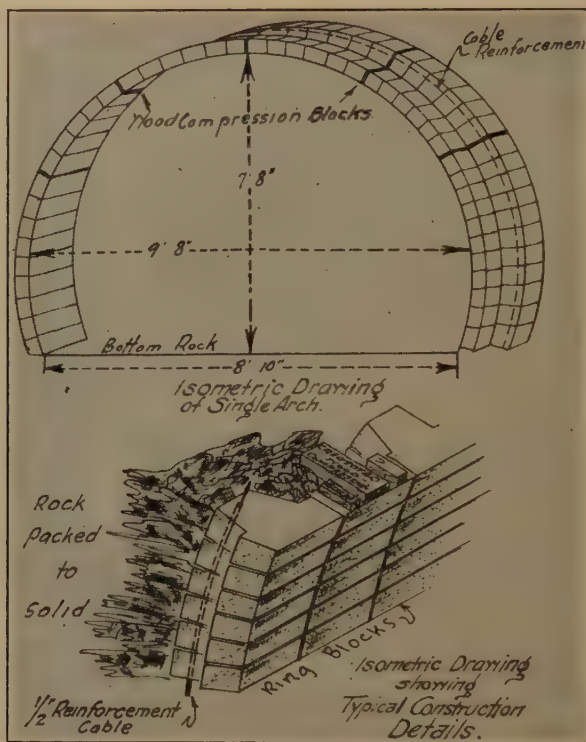 Cable
Reinforcement
Wood Compression Blocks.
7' 8"
9' 8"
Bottom Rock
8' 10"
Isometric Drawing
of Single Arch.
Rock
Packed
to
Solid
Ring Blocks
1/2" Reinforcement
Cable
Isometric Drawing
showing
Typical Construction
Details.